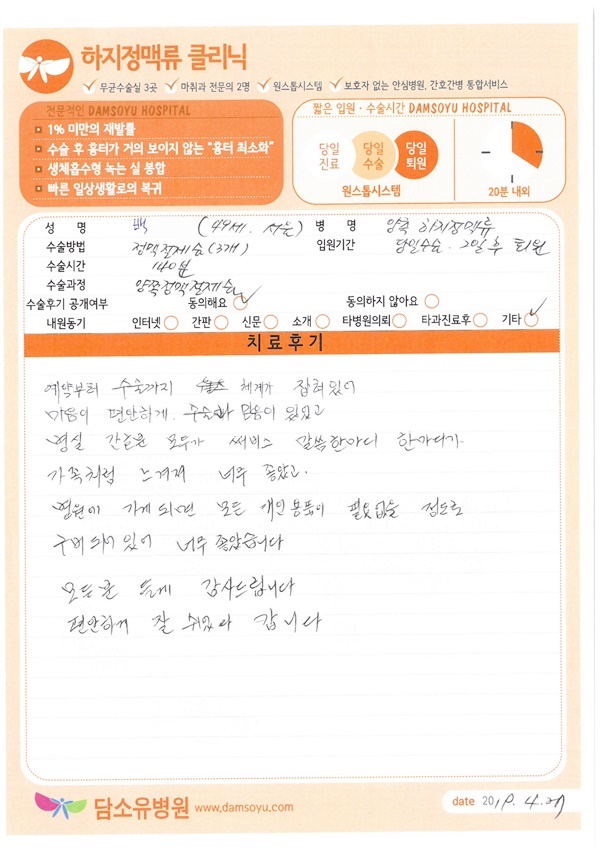 하지정맥류 클리닉
무균수술실 3곳 마취과 전문의 2명 원스톱시스템 보호자 없는 안심병원, 간호간병 통합서비스
전문적인 DAMSOYU HOSPITAL
1% 미만의 재발률
수술 후 흉터가 거의 보이지 않는 "흉터 최소화"
생체흡수형 녹는 실 봉합
빠른 일상생활로의 복귀
짧은 입원·수술시간 DAMSOYU HOSPITAL
당일 진료
당일 수술
당일 퇴원
원스톱시스템
20분 내외
성 명 백 (49세. 서울) 병 명 양측 하지정맥류
수술방법 정맥절제술(3개) 입원기간 당일수술. 2일후 퇴원
수술시간 140분
수술과정 양쪽정맥절제술
수술후기 공개여부 동의해요 동의하지 않아요
내원동기 인터넷 간판 신문 소개 타병원의뢰 타과진료후 기타
치료후기
예약부터 수술까지 체계가 잡혀있어
마음이 편안하게. 수술 믿음이 있었고
병실 간호분 모두가 써비스 말씀한마디 한마디가
가족처럼 느껴져 너무 좋았고.
병원에 가게되면 모든 개인용품이 필요없을 정도로
구비 되어 있어 너무 좋았습니다
모든분 들께 감사드립니다
편안하게 잘 쉬었다 갑니다
담소유병원 www.damsoyu.com
date 2019. 4. 27